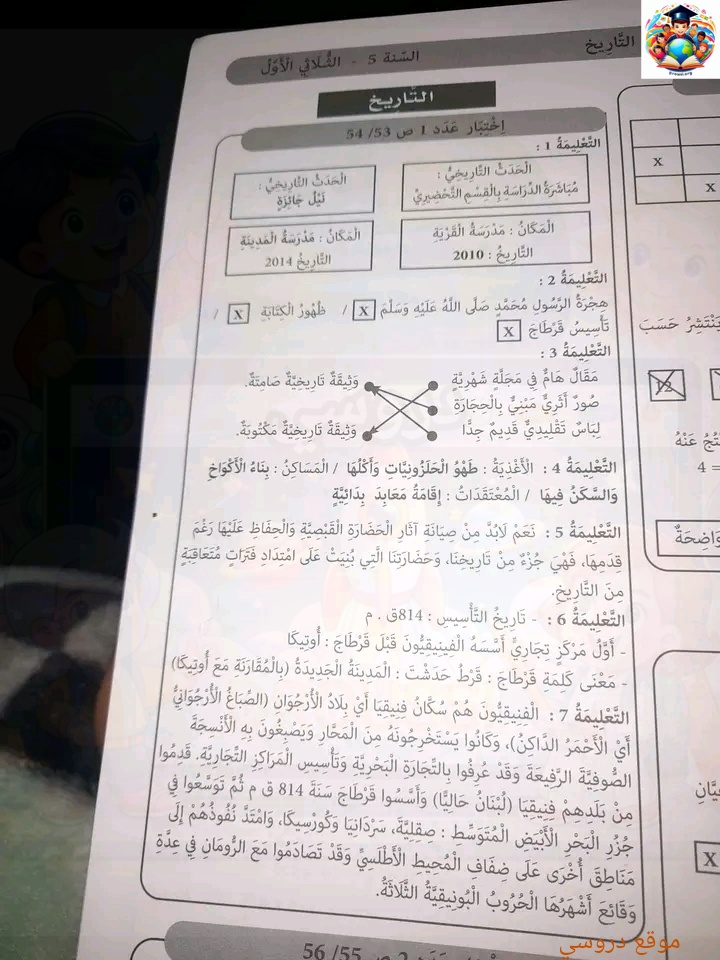 التَّارِيخ
السّنة 5 - الثُّلَاثِي الْأَوَّلُ
التَّارِيخ
اِخْتِبَار عَدَد 1 ص 53/ 54
التَّعْلِيمَةُ 1 :
الْحَدَثُ التَّارِيخِيُّ :
مُبَاشَرَةُ الدِّرَاسَةِ بِالْقِسْمِ التَّحْضِيرِيِّ
الْحَدَثُ التَّارِيخِيُّ :
نَيْلُ جَائِزَةٍ
الْمَكَانُ : مَدْرَسَةُ الْقَرْيَةِ
التَّارِيخُ : 2010
الْمَكَانُ : مَدْرَسَةُ الْمَدِينَةِ
التَّارِيخُ 2014
التَّعْلِيمَةُ 2 :
هِجْرَةُ الرَّسُولِ مُحَمَّدٍ صَلَّى اللَّهُ عَلَيْهِ وَسَلَّمَ X / ظُهُورُ الْكِتَابَةِ X /
تَأْسِيسُ قَرْطَاجَ X
التَّعْلِيمَةُ 3 :
مَقَالٌ هَامٌّ فِي مَجَلَّةٍ شَهْرِيَّةٍ
وَثِيقَةٌ تَارِيخِيَّةٌ صَامِتَةٌ.
صُورٌ أَثَرِيٌّ مَبْنِيٌّ بِالْحِجَارَةِ
لِبَاسٌ تَقْلِيدِيٌّ قَدِيمٌ جِدًّا
وَثِيقَةٌ تَارِيخِيَّةٌ مَكْتُوبَةٌ.
التَّعْلِيمَةُ 4 : الْأَغْذِيَةُ : طَهْوُ الْحَلَزُونِيَّاتِ وَأَكْلُهَا / الْمَسَاكِنُ : بِنَاءُ الْأَكْوَاخِ
وَالسَّكَنُ فِيهَا / الْمُعْتَقَدَاتُ : إِقَامَةُ مَعَابِدَ بِدَائِيَّةٍ
التَّعْلِيمَةُ 5 : نَعَمْ لَابُدَّ مِنْ صِيَانَةِ آثَارِ الْحَضَارَةِ الْقَبْصِيَّةِ وَالْحِفَاظِ عَلَيْهَا رَغْمَ
قِدَمِهَا، فَهْيَ جُزْءٌ مِنْ تَارِيخِنَا، وَحَضَارَتِنَا الَّتِي بُنِيَتْ عَلَى امْتِدَادِ فَتَرَاتٍ مُتَعَاقِبَةٍ
مِنَ التَّارِيخِ.
التَّعْلِيمَةُ 6 : - تَارِيخُ التَّأْسِيسِ : 814ق . م
- أَوَّلُ مَرْكَزٍ تِجَارِيٍّ أَسَّسَهُ الْفِينِيقِيُّونَ قَبْلَ قَرْطَاجَ : أُوتِيكَا
- مَعْنَى كَلِمَةِ قَرْطَاجَ : قَرْطُ حَدَشْتَ : الْمَدِينَةُ الْجَدِيدَةُ (بِالْمُقَارَنَةِ مَعَ أُوتِيكَا)
التَّعْلِيمَةُ 7 : الْفِنِيقِيُّونَ هُمْ سُكَّانُ فِنِيقِيَا أَيْ بِلَادُ الْأُرْجُوَانِ (الصِّبَاغُ الْأُرْجُوَانِيُّ
أَيْ الْأَحْمَرُ الدَّاكِنُ)، وَكَانُوا يَسْتَخْرِجُونَهُ مِنَ الْمَحَّارِ وَيَصْبِغُونَ بِهِ الْأَنْسِجَةَ
الصُّوفِيَّةَ الرَّفِيعَةَ وَقَدْ عُرِفُوا بِالتِّجَارَةِ الْبَحْرِيَّةِ وَتَأْسِيسِ الْمَرَاكِزِ التِّجَارِيَّةِ. قَدِمُوا
مِنْ بَلَدِهِمْ فِنِيقِيَا (لُبْنَانُ حَالِيًّا) وَأَسَّسُوا قَرْطَاجَ سَنَةَ 814 ق م ثُمَّ تَوَسَّعُوا فِي
جُزُرِ الْبَحْرِ الْأَبْيَضِ الْمُتَوَسِّطِ : صِقِلِيَّةَ، سَرْدَانِيَا وَكُورْسِيكَا، وَامْتَدَّ نُفُوذُهُمْ إِلَى
مَنَاطِقَ أُخْرَى عَلَى ضِفَافِ الْمُحِيطِ الْأَطْلَسِيِّ وَقَدْ تَصَادَمُوا مَعَ الرُّومَانِ فِي عِدَّةِ
وَقَائِعَ أَشْهَرُهَا الْحُرُوبُ الْبُونِيقِيَّةُ الثَّلَاثَةُ.
X
X
يَنْتَشِرُ حَسَبَ
12
عَنْهُ
4 =
وَاضِحَةٌ
X
ص 55/ 56
موقع دروسي